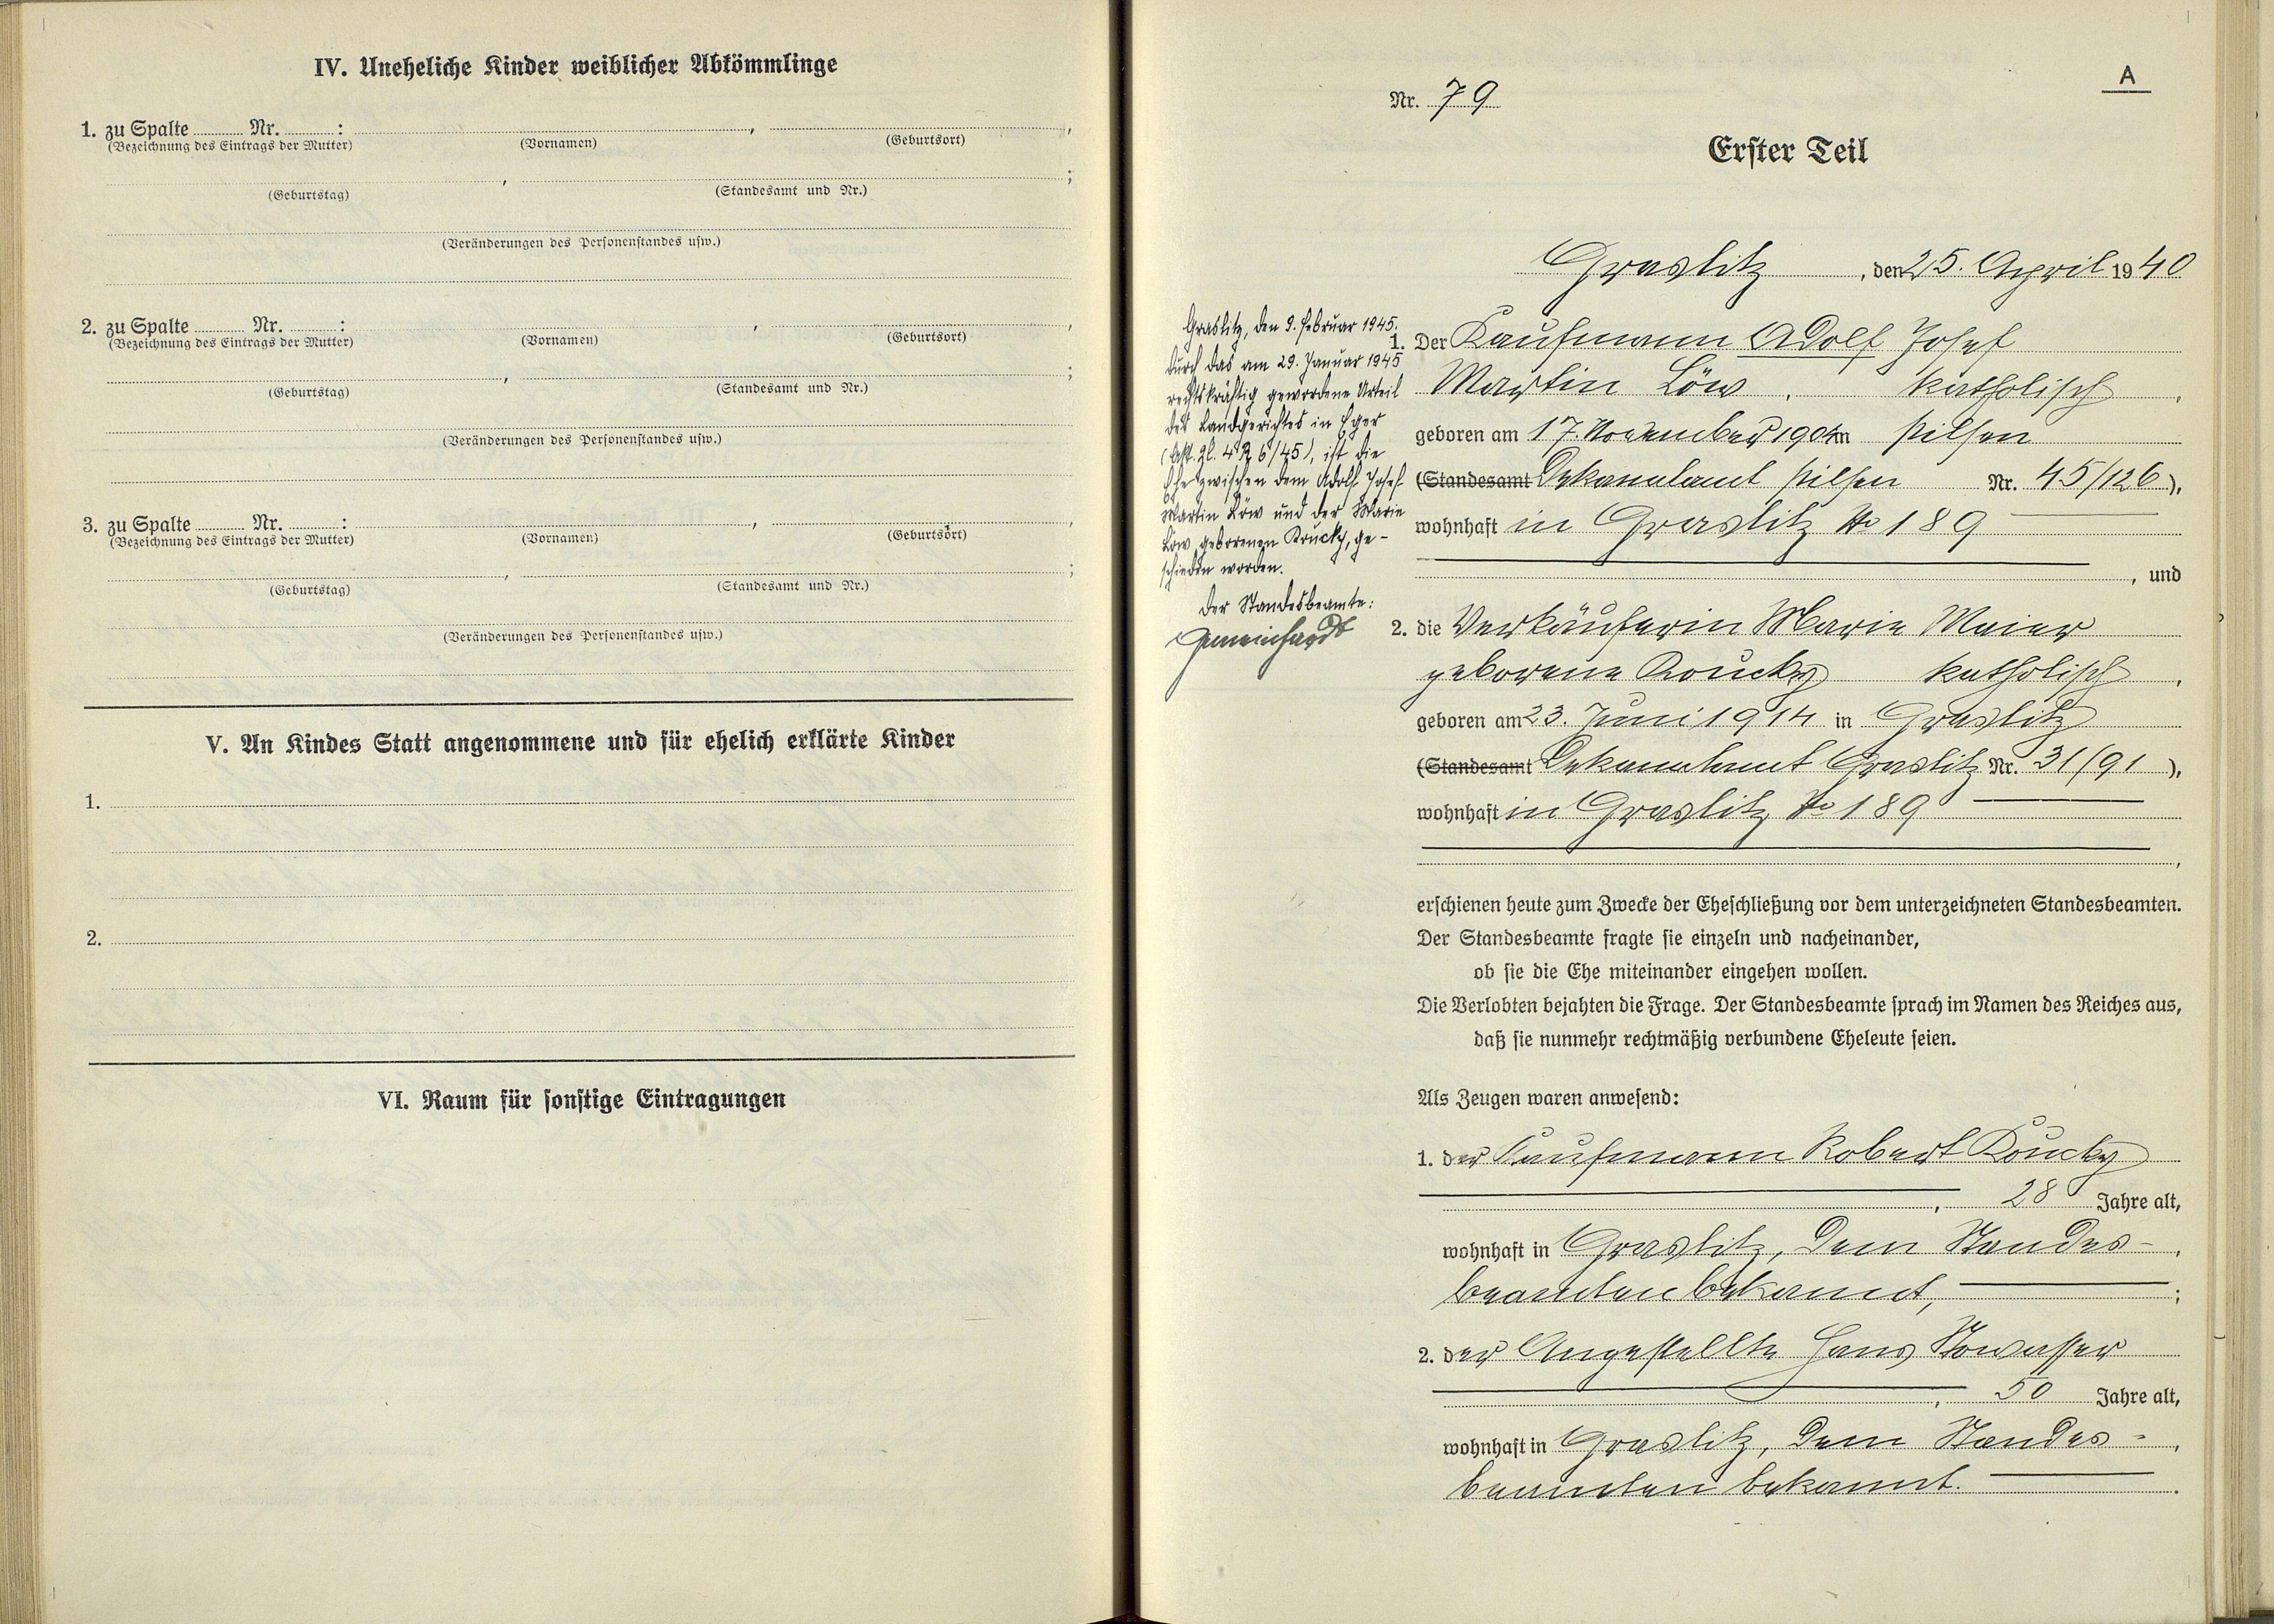 IV. Uneheliche Kinder weiblicher Abkömmlinge
1. zu Spalte ........ Nr. ........ : ........ , ........ ,
(Bezeichnung des Eintrags der Mutter) (Vornamen) (Geburtsort)
........ , ........ ;
(Geburtstag) (Standesamt und Nr.)
(Veränderungen des Personenstandes usw.)
2. zu Spalte ........ Nr. ........ : ........ , ........ ,
(Bezeichnung des Eintrags der Mutter) (Vornamen) (Geburtsort)
........ , ........ ;
(Geburtstag) (Standesamt und Nr.)
(Veränderungen des Personenstandes usw.)
3. zu Spalte ........ Nr. ........ : ........ , ........ ,
(Bezeichnung des Eintrags der Mutter) (Vornamen) (Geburtsort)
........ , ........ ;
(Geburtstag) (Standesamt und Nr.)
(Veränderungen des Personenstandes usw.)
V. An Kindes Statt angenommene und für ehelich erklärte Kinder
1.
2.
VI. Raum für sonstige Eintragungen
A
Nr. 79
Erster Teil
Graslitz, den 25. April 1940
Graslitz, den 9. Februar 1945.
Durch das am 29. Januar 1945
rechtskräftig gewordene Urteil
des Landgerichtes in Eger
4 R 6/45), ist die
Ehe zwischen dem Adolf Josef
Martin Löw und der Marie
Löw geborenen Koucky, ge-
schieden worden.
Der Standesbeamte:
Gemeinhardt
1. Der Kaufmann Adolf Josef
Martin Löw, katholisch,
geboren am 17. November 1904 in Pilsen
(Standesamt Dekanalamt Pilsen Nr. 45/126),
wohnhaft in Graslitz No 189
, und
2. die Verkäuferin Marie Maier
geborene Koucky katholisch,
geboren am 23. Juni 1914 in Graslitz
(Standesamt Dekanalamt Graslitz Nr. 31/91),
wohnhaft in Graslitz No 189
,
erschienen heute zum Zwecke der Eheschließung vor dem unterzeichneten Standesbeamten.
Der Standesbeamte fragte sie einzeln und nacheinander,
ob sie die Ehe miteinander eingehen wollen.
Die Verlobten bejahten die Frage. Der Standesbeamte sprach im Namen des Reiches aus,
daß sie nunmehr rechtmäßig verbundene Eheleute seien.
Als Zeugen waren anwesend:
1. der Kaufmann Robert Koucky
, 28 Jahre alt,
wohnhaft in Graslitz, dem Standes-,
beamten bekannt, ;
2. der Angestellte Hans Stowasser
, 50 Jahre alt,
wohnhaft in Graslitz, dem Standes-,
beamten bekannt.